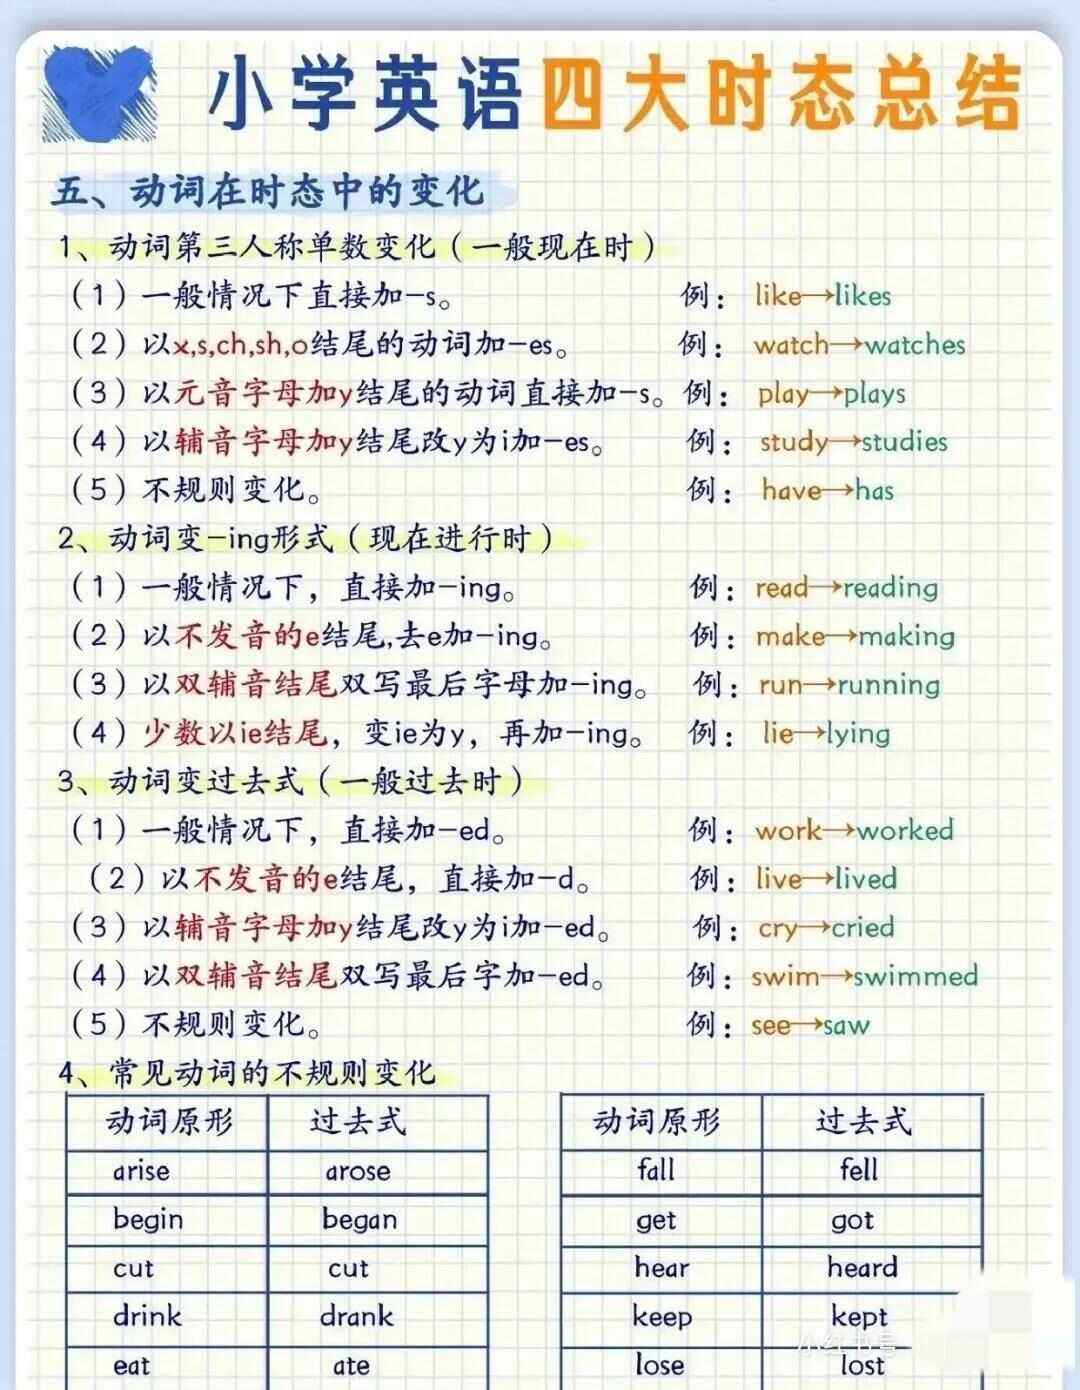 小学英语四大时态总结
五、动词在时态中的变化
1、动词第三人称单数变化（一般现在时）
（1）一般情况下直接加-s。 例： like→likes
（2）以x,s,ch,sh,o结尾的动词加-es。 例： watch→watches
（3）以元音字母加y结尾的动词直接加-s。 例： play→plays
（4）以辅音字母加y结尾改y为i加-es。 例： study→studies
（5）不规则变化。 例： have→has
2、动词变-ing形式（现在进行时）
（1）一般情况下，直接加-ing。 例：read→reading
（2）以不发音的e结尾,去e加-ing。 例：make→making
（3）以双辅音结尾双写最后字母加-ing。 例：run→running
（4）少数以ie结尾，变ie为y，再加-ing。 例： lie→lying
3、动词变过去式（一般过去时）
（1）一般情况下，直接加-ed。 例：work→worked
（2）以不发音的e结尾，直接加-d。 例：live→lived
（3）以辅音字母加y结尾改y为i加-ed。 例：cry→cried
（4）以双辅音结尾双写最后字加-ed。 例：swim→swimmed
（5）不规则变化。 例：see→saw
4、常见动词的不规则变化
动词原形 过去式 动词原形 过去式
arise arose fall fell
begin began get got
cut cut hear heard
drink drank keep kept
eat ate lose lost
小红书号